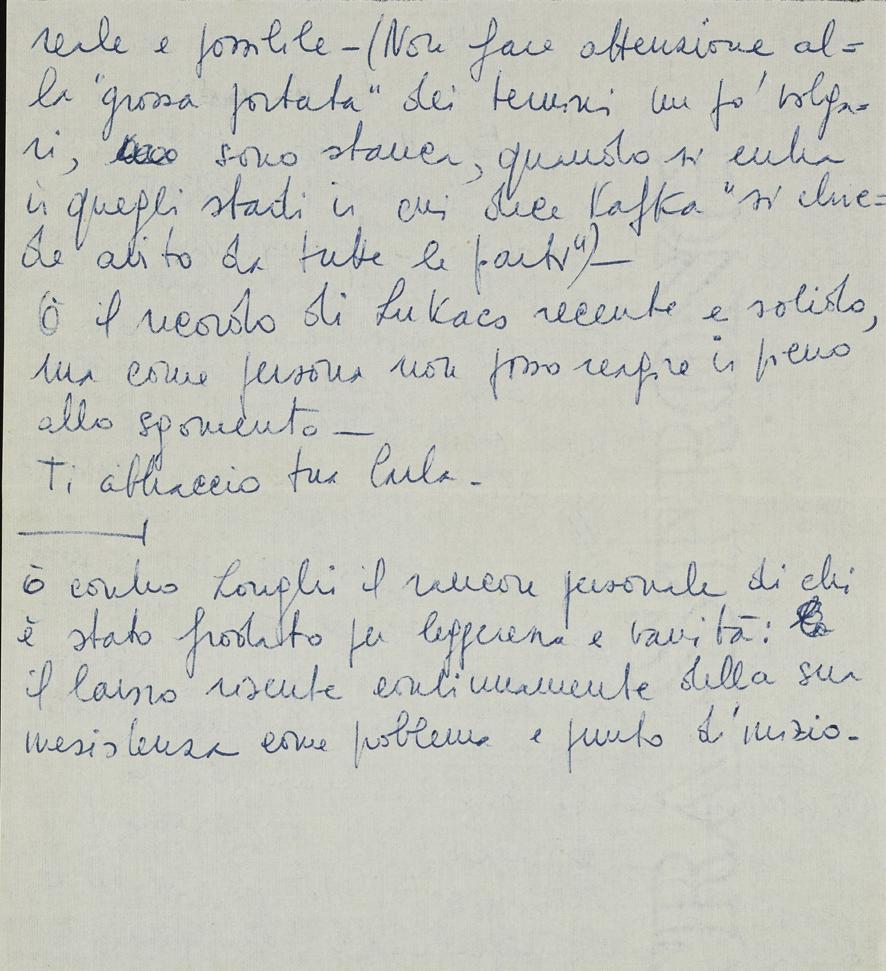 reale e possibile – (Non fare attensione al=
la "grossa portata" dei termini un po' volga=
ri, sono stanca, quando si entra
in quegli stadi in cui dice Kafka "si chie=
de aiuto da tutte le parti") –
Ò il ricordo di Lukacs recente e solido,
ma come persona non posso reagire in pieno
allo sgomento –
Ti abbraccio tua Carla -
ò contro Longhi il rancore personale di chi
è stato frodato per leggerezza e vanità:
il lavoro risente continuamente della sua
inesistenza come problema e punto d'inizio -